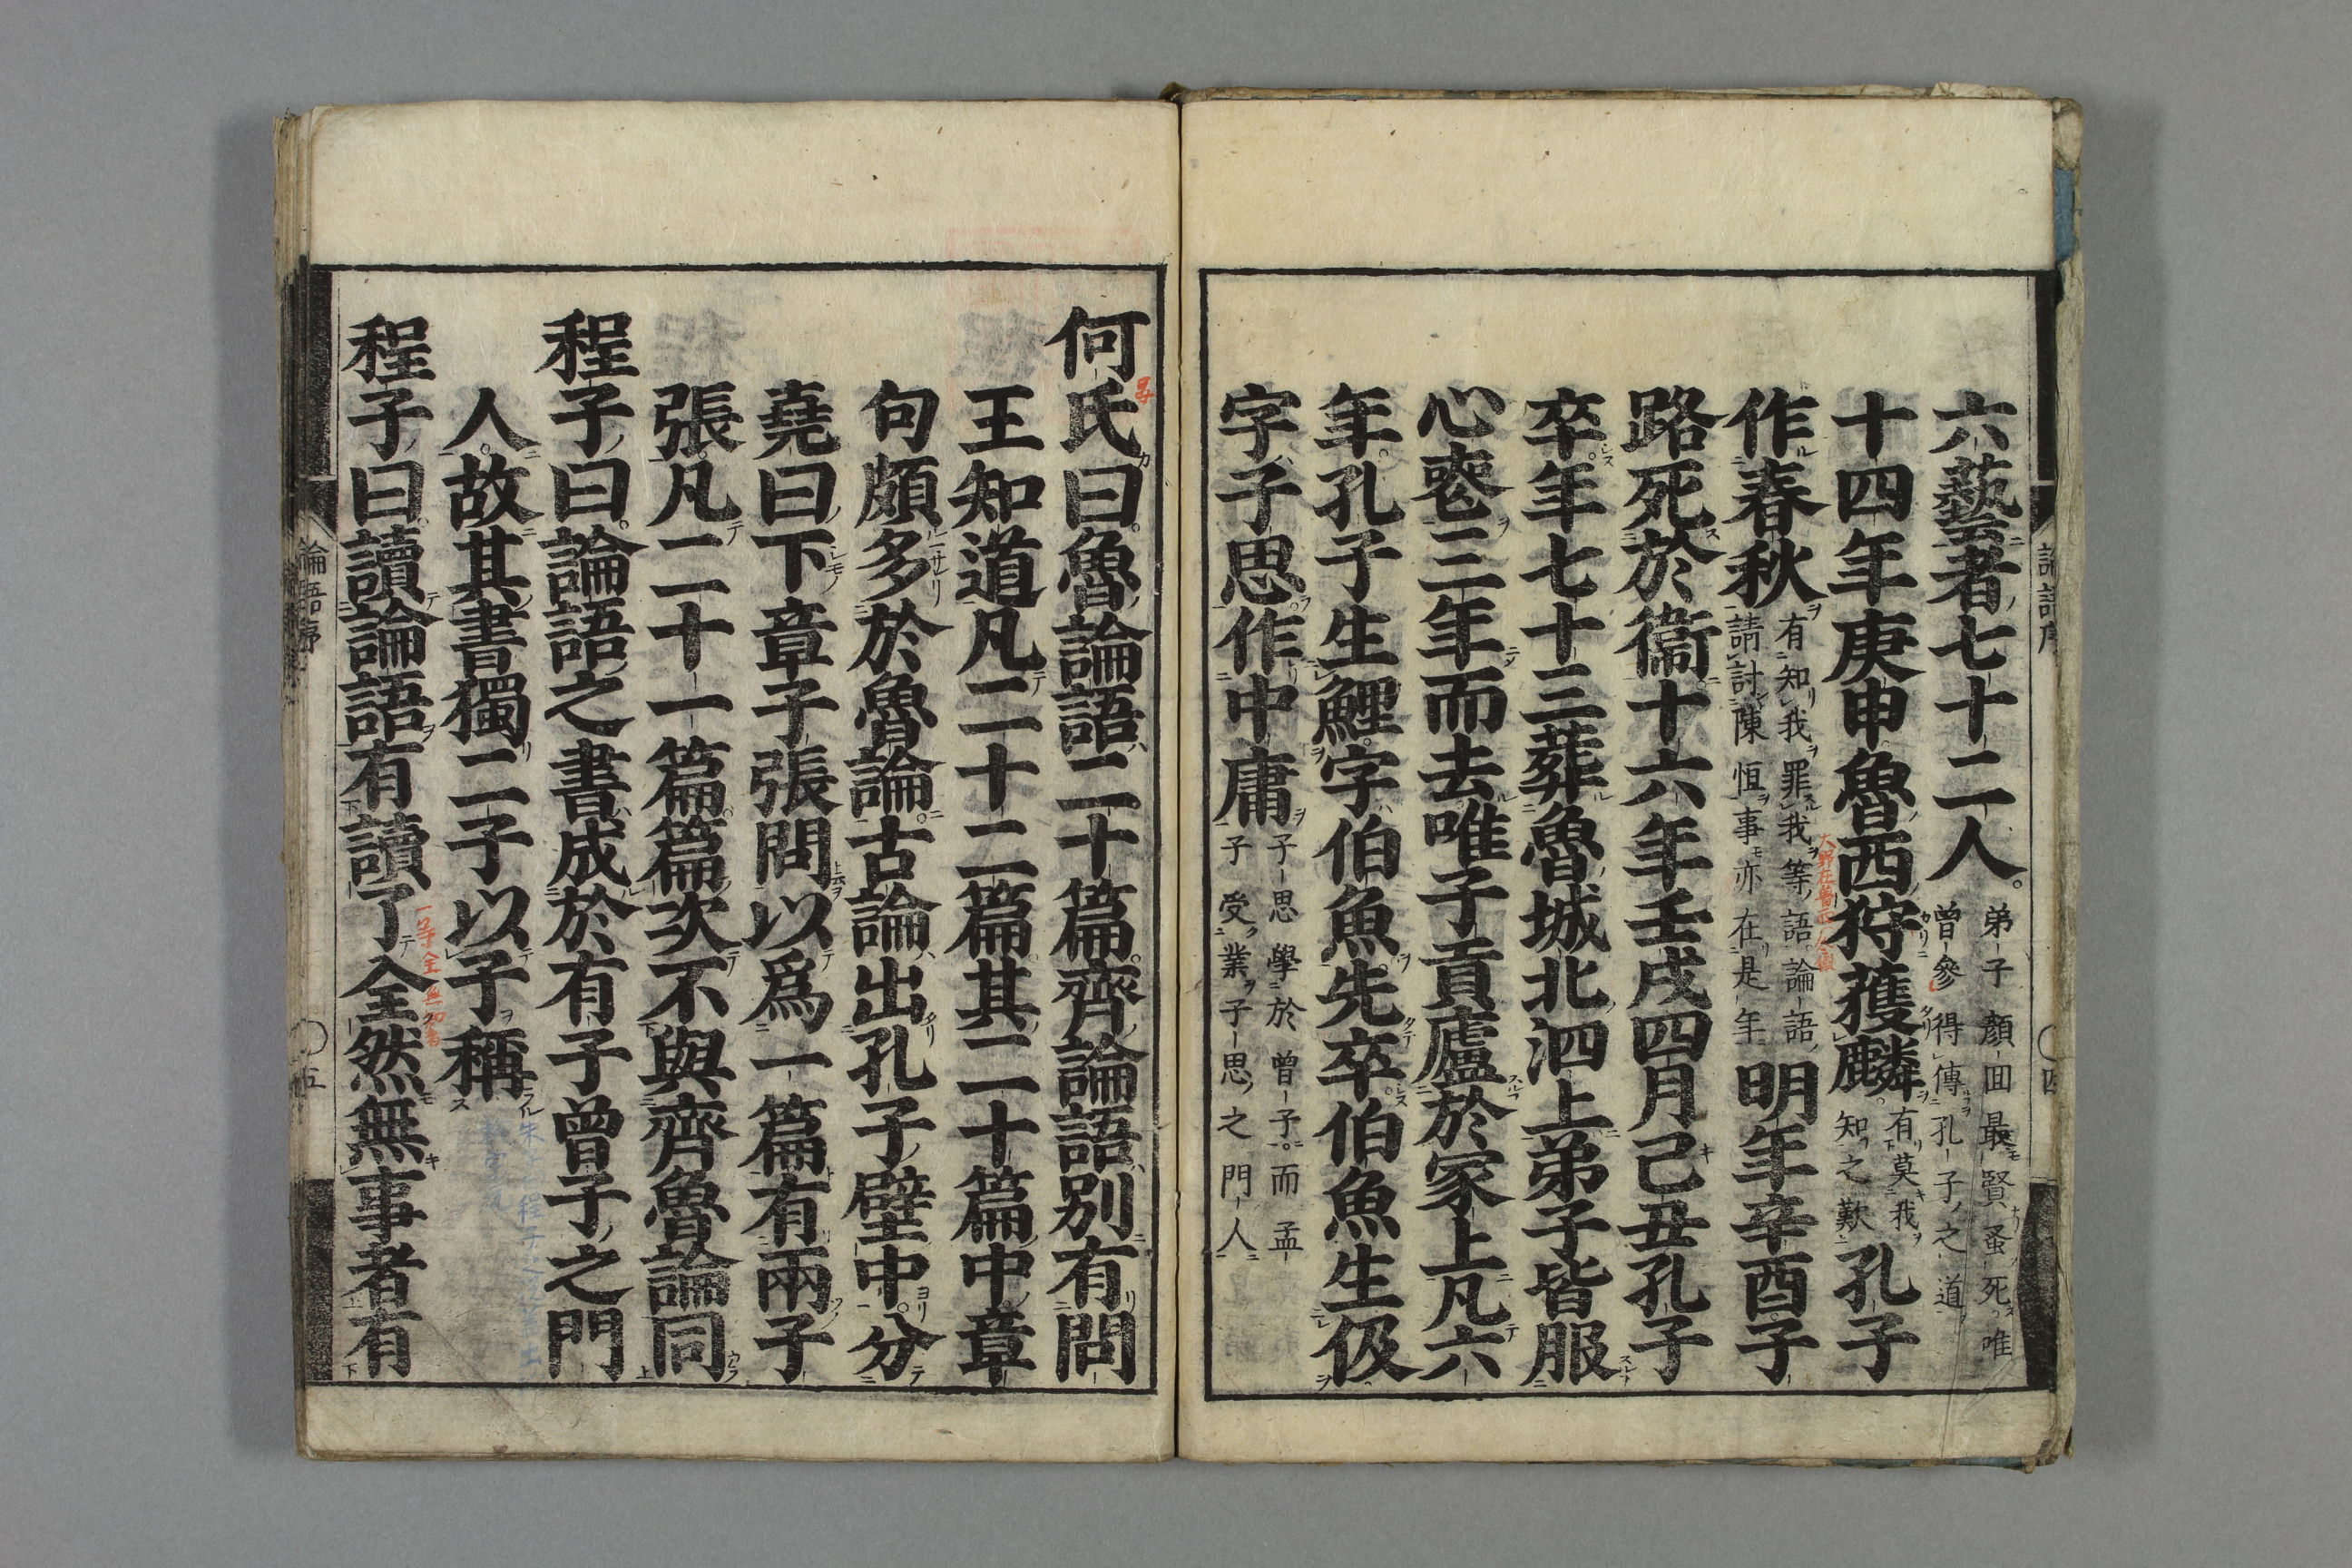 六藝者七十二人。弟子顏回最賢蚤死。唯
曾參得傳孔子之道
十四年庚申魯西狩獲麟。有莫我
知之歎孔子
作春秋有知我罪我等語論語
請討陳恒事亦在是年明年辛酉子
路死於衞十六年壬戌四月己丑孔子
卒。年七十三葬魯城北泗上弟子皆服
心喪三年而去唯子貢廬於冢上凡六
年。孔子生鯉。字伯魚。先卒。伯魚生伋
字子思。作中庸子思學於曾子。而孟
子受業子思之門人
何氏曰。魯論語二十篇。齊論語別有問
王知道凡二十二篇。其二十篇中章
句頗多於魯論。古論出孔子壁中。分
堯曰下章子張問以爲一篇有兩子
張。凡二十一篇。篇次不與齊魯論同
程子曰。論語之書成於有子曾子之門
人。故其書獨二子以子稱
程子曰。讀論語有讀了全然無事者有
論語序
四
論語序
五